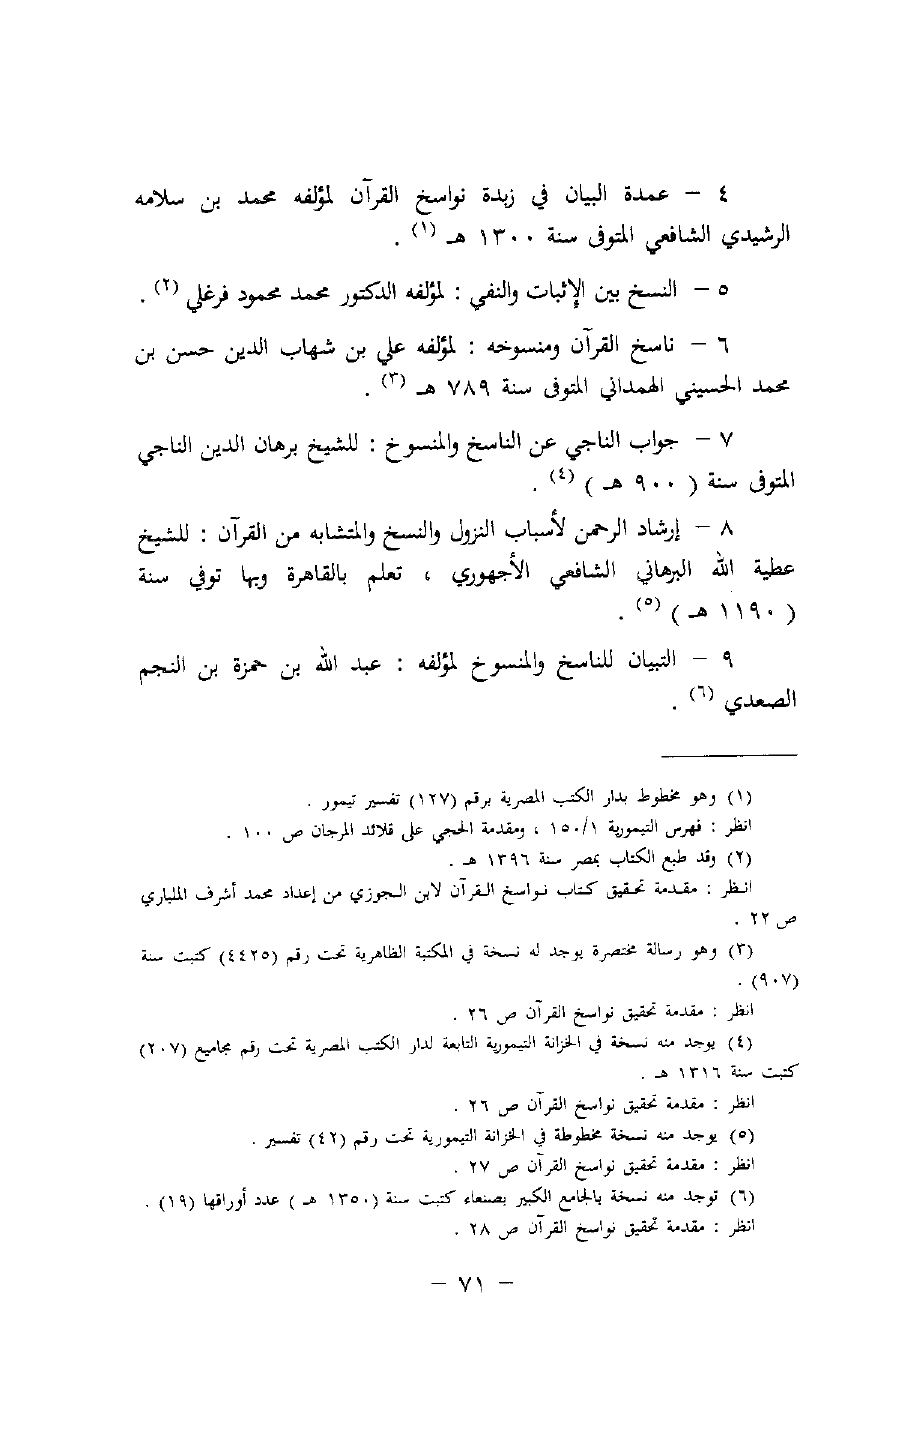 ٤ – عمدة البيان في زبدة نواسخ القرآن لمؤلفه محمد بن سلامه
الرشيدي الشافعي المتوفى سنة ١٣٠٠ هـ (١) .
٥ – النسخ بين الإثبات والنفي : لمؤلفه الدكتور محمد محمود فرغلي (٢) .
٦ – ناسخ القرآن ومنسوخه : لمؤلفه علي بن شهاب الدين حسن بن
محمد الحسيني الهمداني المتوفى سنة ٧٨٩ هـ (٣) .
٧ – جواب الناجي عن الناسخ والمنسوخ : للشيخ برهان الدين الناجي
المتوفى سنة ( ٩٠٠ هـ ) (٤) .
٨ – إرشاد الرحمن لأسباب النزول والنسخ والمتشابه من القرآن : للشيخ
عطية الله البرهاني الشافعي الأجهوري ، تعلم بالقاهرة وبها توفي سنة
( ١١٩٠ هـ ) (٥) .
٩ – التبيان للناسخ والمنسوخ لمؤلفه : عبد الله بن حمزة بن النجم
الصعدي (٦) .
(١) وهو مخطوط بدار الكتب المصرية برقم (١٢٧) تفسير تيمور .
انظر : فهرس التيمورية ١/١٥٠ ، ومقدمة الحجي على قلائد المرجان ص ١٠٠ .
(٢) وقد طبع الكتاب بمصر سنة ١٣٩٦ هـ .
انظر : مقدمة تحقيق كتاب نواسخ القرآن لابن الجوزي من إعداد محمد أشرف الملباري
ص ٢٢ .
(٣) وهو رسالة مختصرة يوجد له نسخة في المكتبة الظاهرية تحت رقم (٤٤٢٥) كتبت سنة
(٩٠٧) .
انظر : مقدمة تحقيق نواسخ القرآن ص ٢٦ .
(٤) يوجد منه نسخة في الخزانة التيمورية التابعة لدار الكتب المصرية تحت رقم مجاميع (٢٠٧)
كتبت سنة ١٣١٦ هـ .
انظر : مقدمة تحقيق نواسخ القرآن ص ٢٦ .
(٥) يوجد منه نسخة مخطوطة في الخزانة التيمورية تحت رقم (٤٢) تفسير .
انظر : مقدمة تحقيق نواسخ القرآن ص ٢٧ .
(٦) توجد منه نسخة بالجامع الكبير بصنعاء كتبت سنة (١٣٥٠ هـ ) عدد أوراقها (١٩) .
انظر : مقدمة تحقيق نواسخ القرآن ص ٢٨ .
– ٧١ –